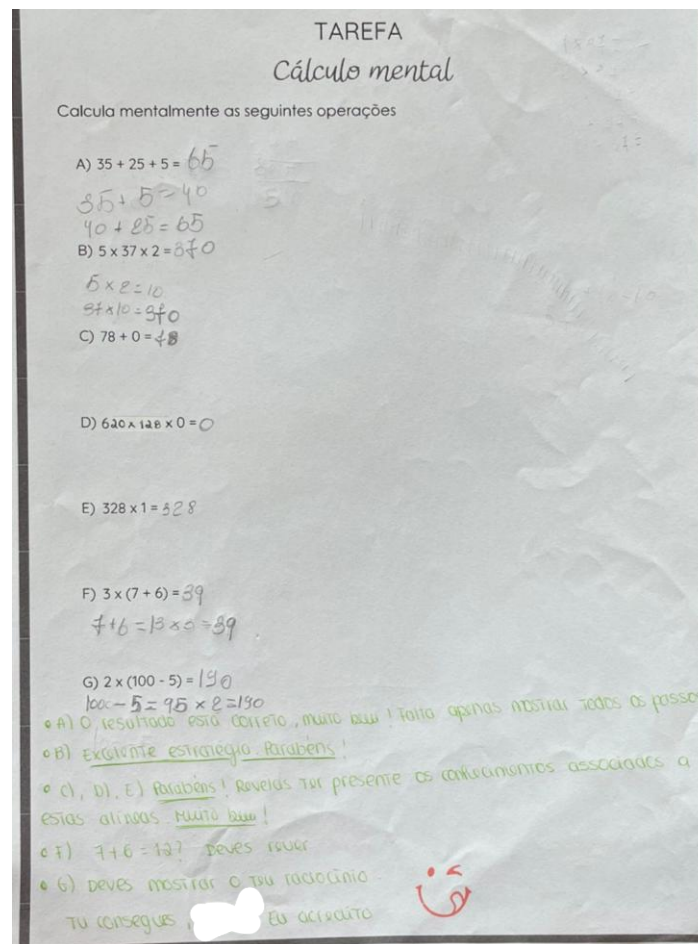 TAREFA
Cálculo mental
Calcula mentalmente as seguintes operações
A) 35 + 25 + 5 = 65
35 + 5 = 40
40 + 25 = 65
B) 5 x 37 x 2 = 370
5 x 2 = 10
37 x 10 = 370
C) 78 + 0 = 78
D) 620 x 128 x 0 = 0
E) 328 x 1 = 328
F) 3 x (7 + 6) = 39
7 + 6 = 13 x 3 = 39
G) 2 x (100 - 5) = 190
100 - 5 = 95 x 2 = 190
• A) O resultado está correto, muito bem! Falta apenas mostrar todos os passo
• B) Excelente estratégia. Parabéns!
• C), D), E) Parabéns! Revelas ter presente os conhecimentos associados a
estas alíneas. Muito bem!
• F) 7+6=12? Deves rever
• G) Deves mostrar o teu raciocínio.
Tu consegues, Eu acredito